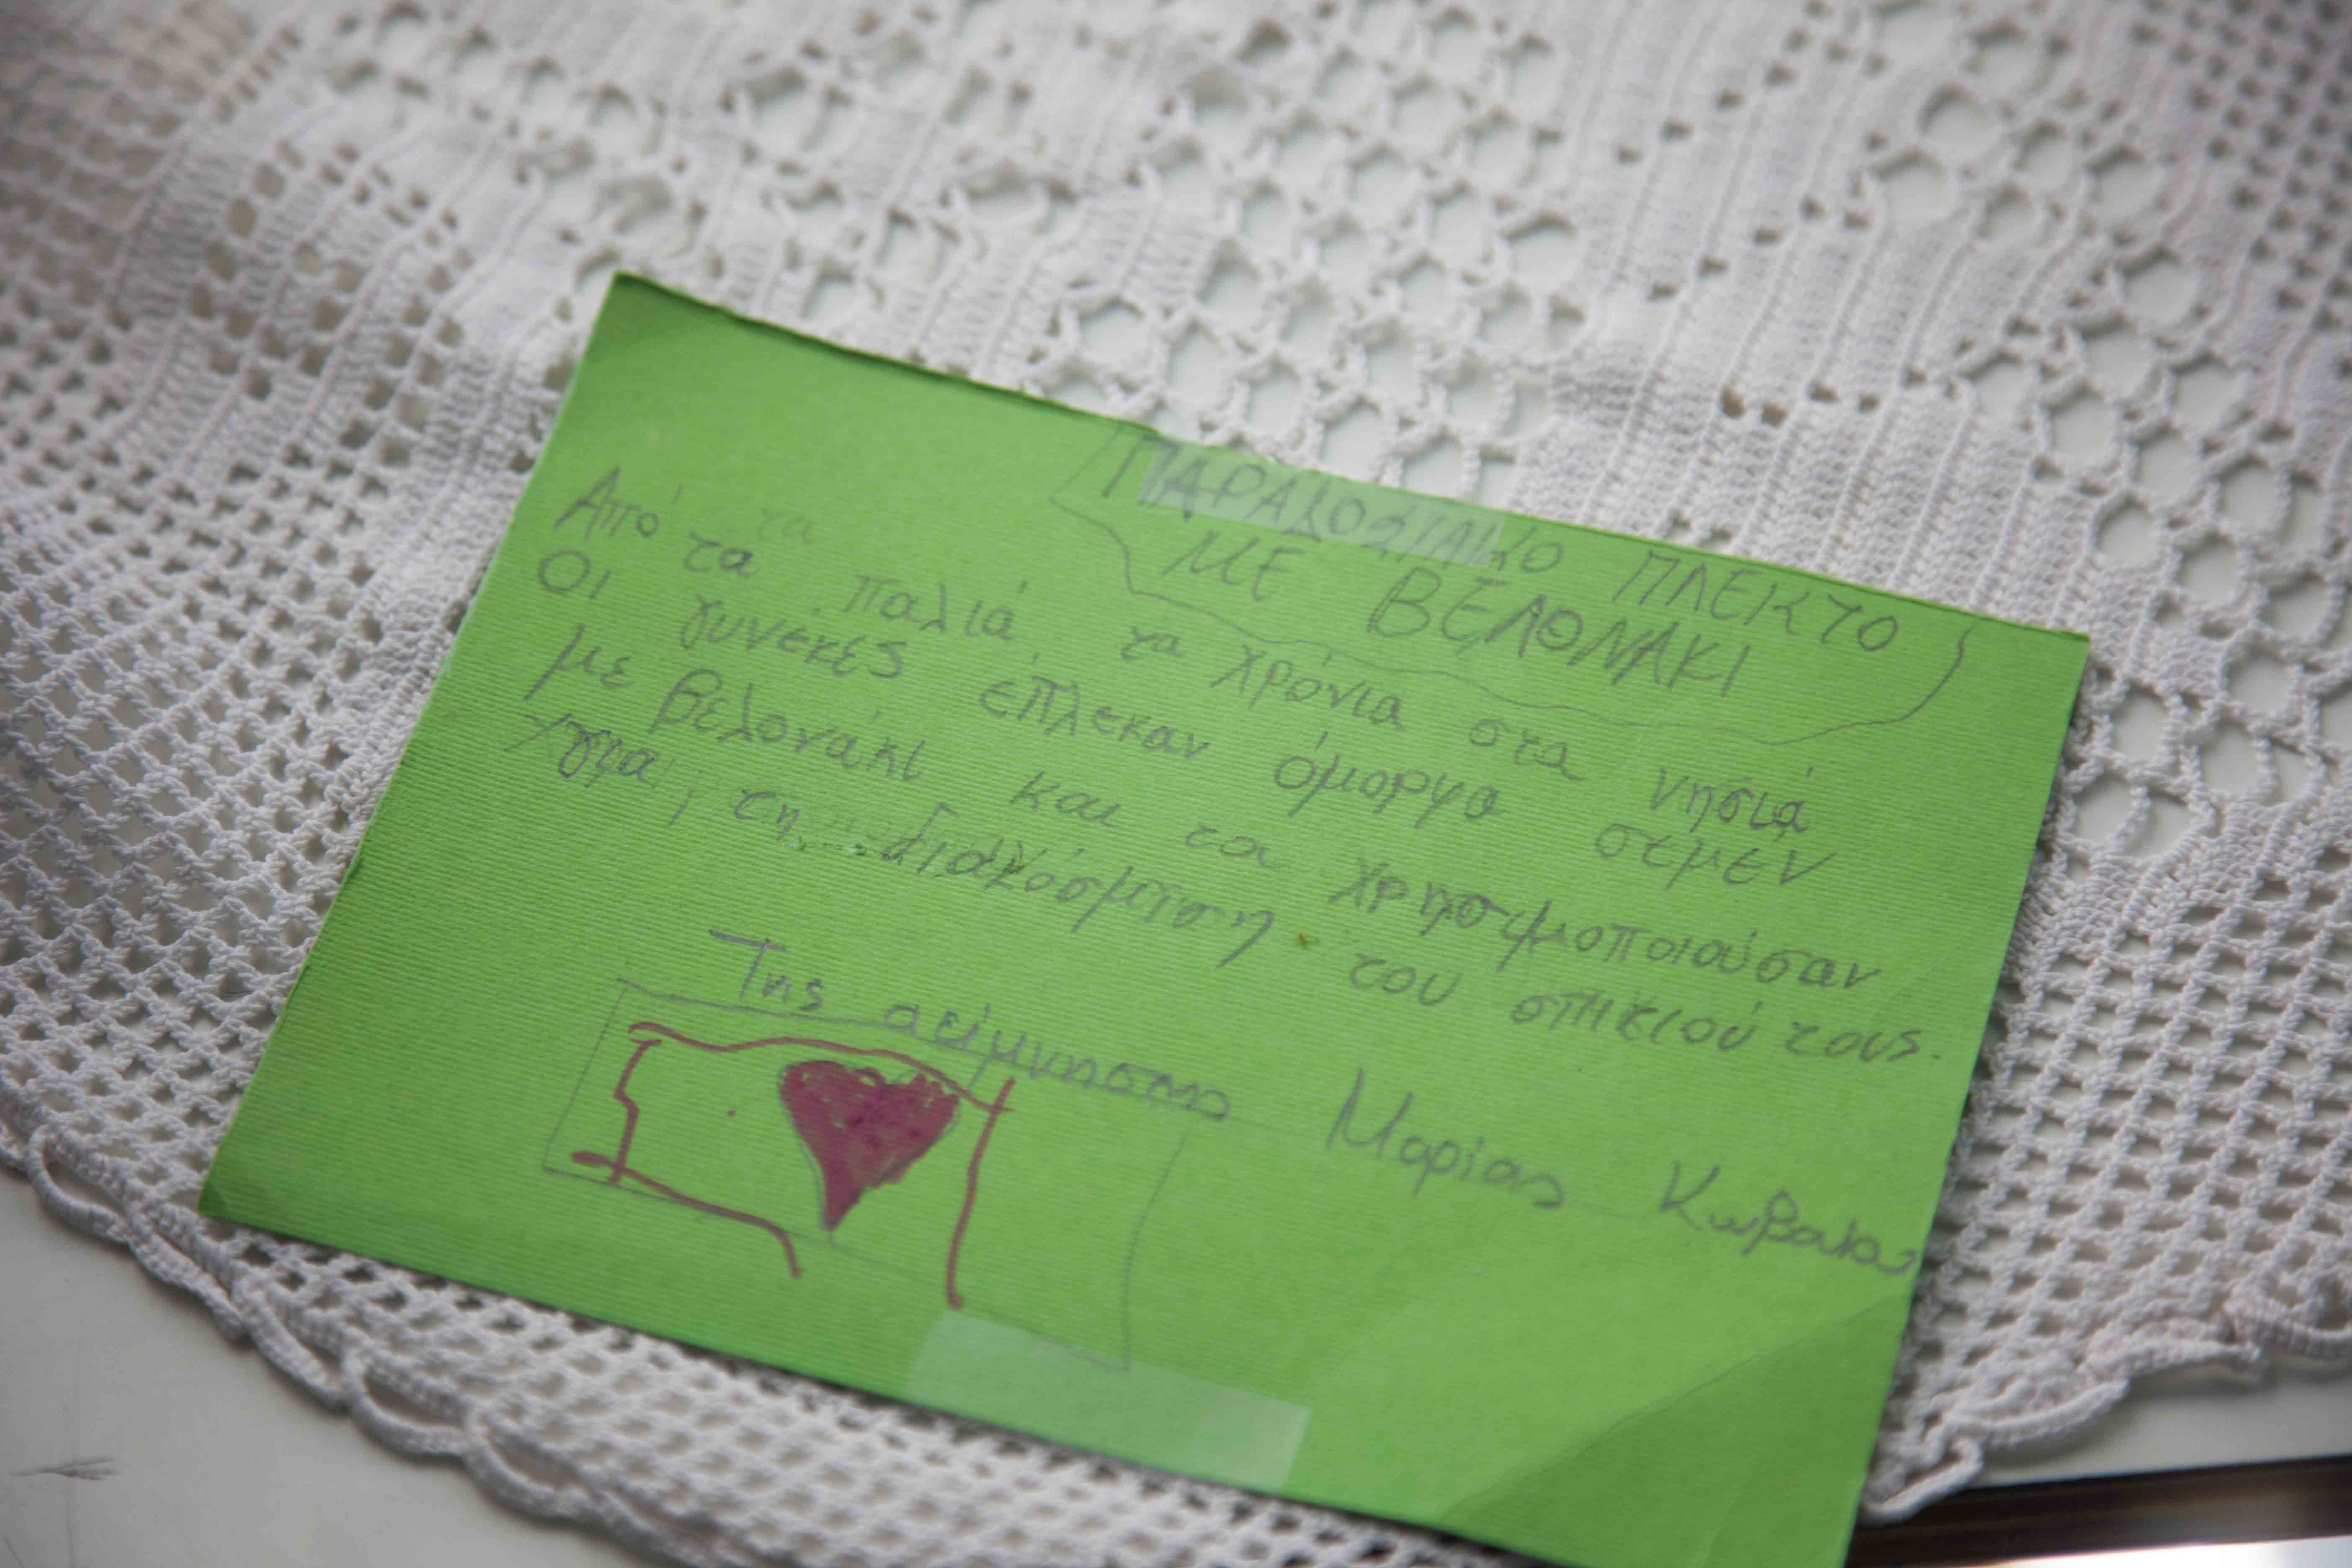 ΠΑΡΑΔΟΣΙΑΚΟ ΠΛΕΚΤΟ
ΜΕ ΒΕΛΟΝΑΚΙ
Από τα παλιά τα χρόνια στα νησιά
Οι γυνεκές έπλεκαν όμορφα σεμεν
με βελονάκι και τα χρησιμοποιούσαν
για τη διακόσμηση του σπιτιού τους.
Της αείμνησης Μαρίας